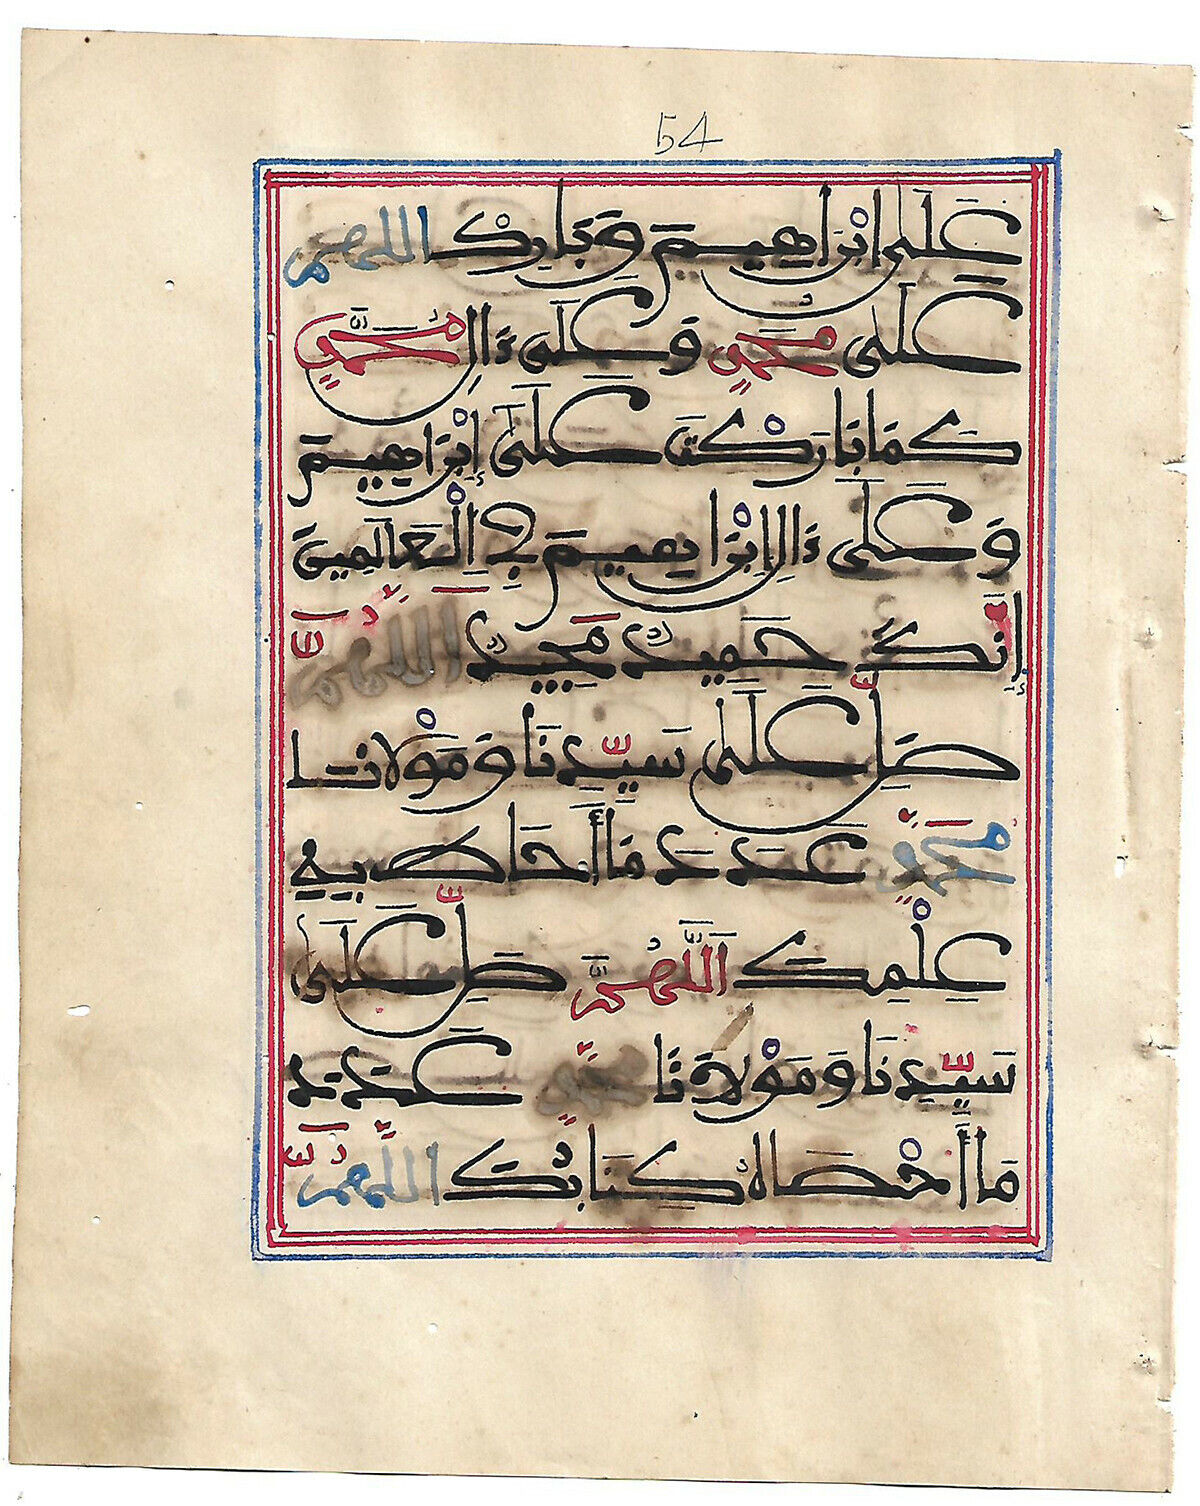 54
عَلَى اِبْرَاهِيمَ وَبَارِكْ اللهم
عَلَى مُحَمَّدٍ وَعَلَى ءَالِ مُحَمَّدٍ
كَمَا بَارَكْتَ عَلَى إِبْرَاهِيمَ
وَعَلَى ءَالِ اِبْرَاهِيمَ فِي الْعَالَمِينَ
إِنَّكَ حَمِيدٌ مَجِيدٌ اللَّهُمَّ
صَلِّ عَلَى سَيِّدِنَا وَمَوْلَانَا
مُحَمَّدٍ عَدَدَ مَا أَحَاطَ بِهِ
عِلْمُكَ اَللَّهُمَّ صَلِّ عَلَى
سَيِّدِنَا وَمَوْلَانَا مُحَمَّدٍ عَدَدَ
مَا أَحْصَاهُ كِتَابُكَ اللَّهُمَّ